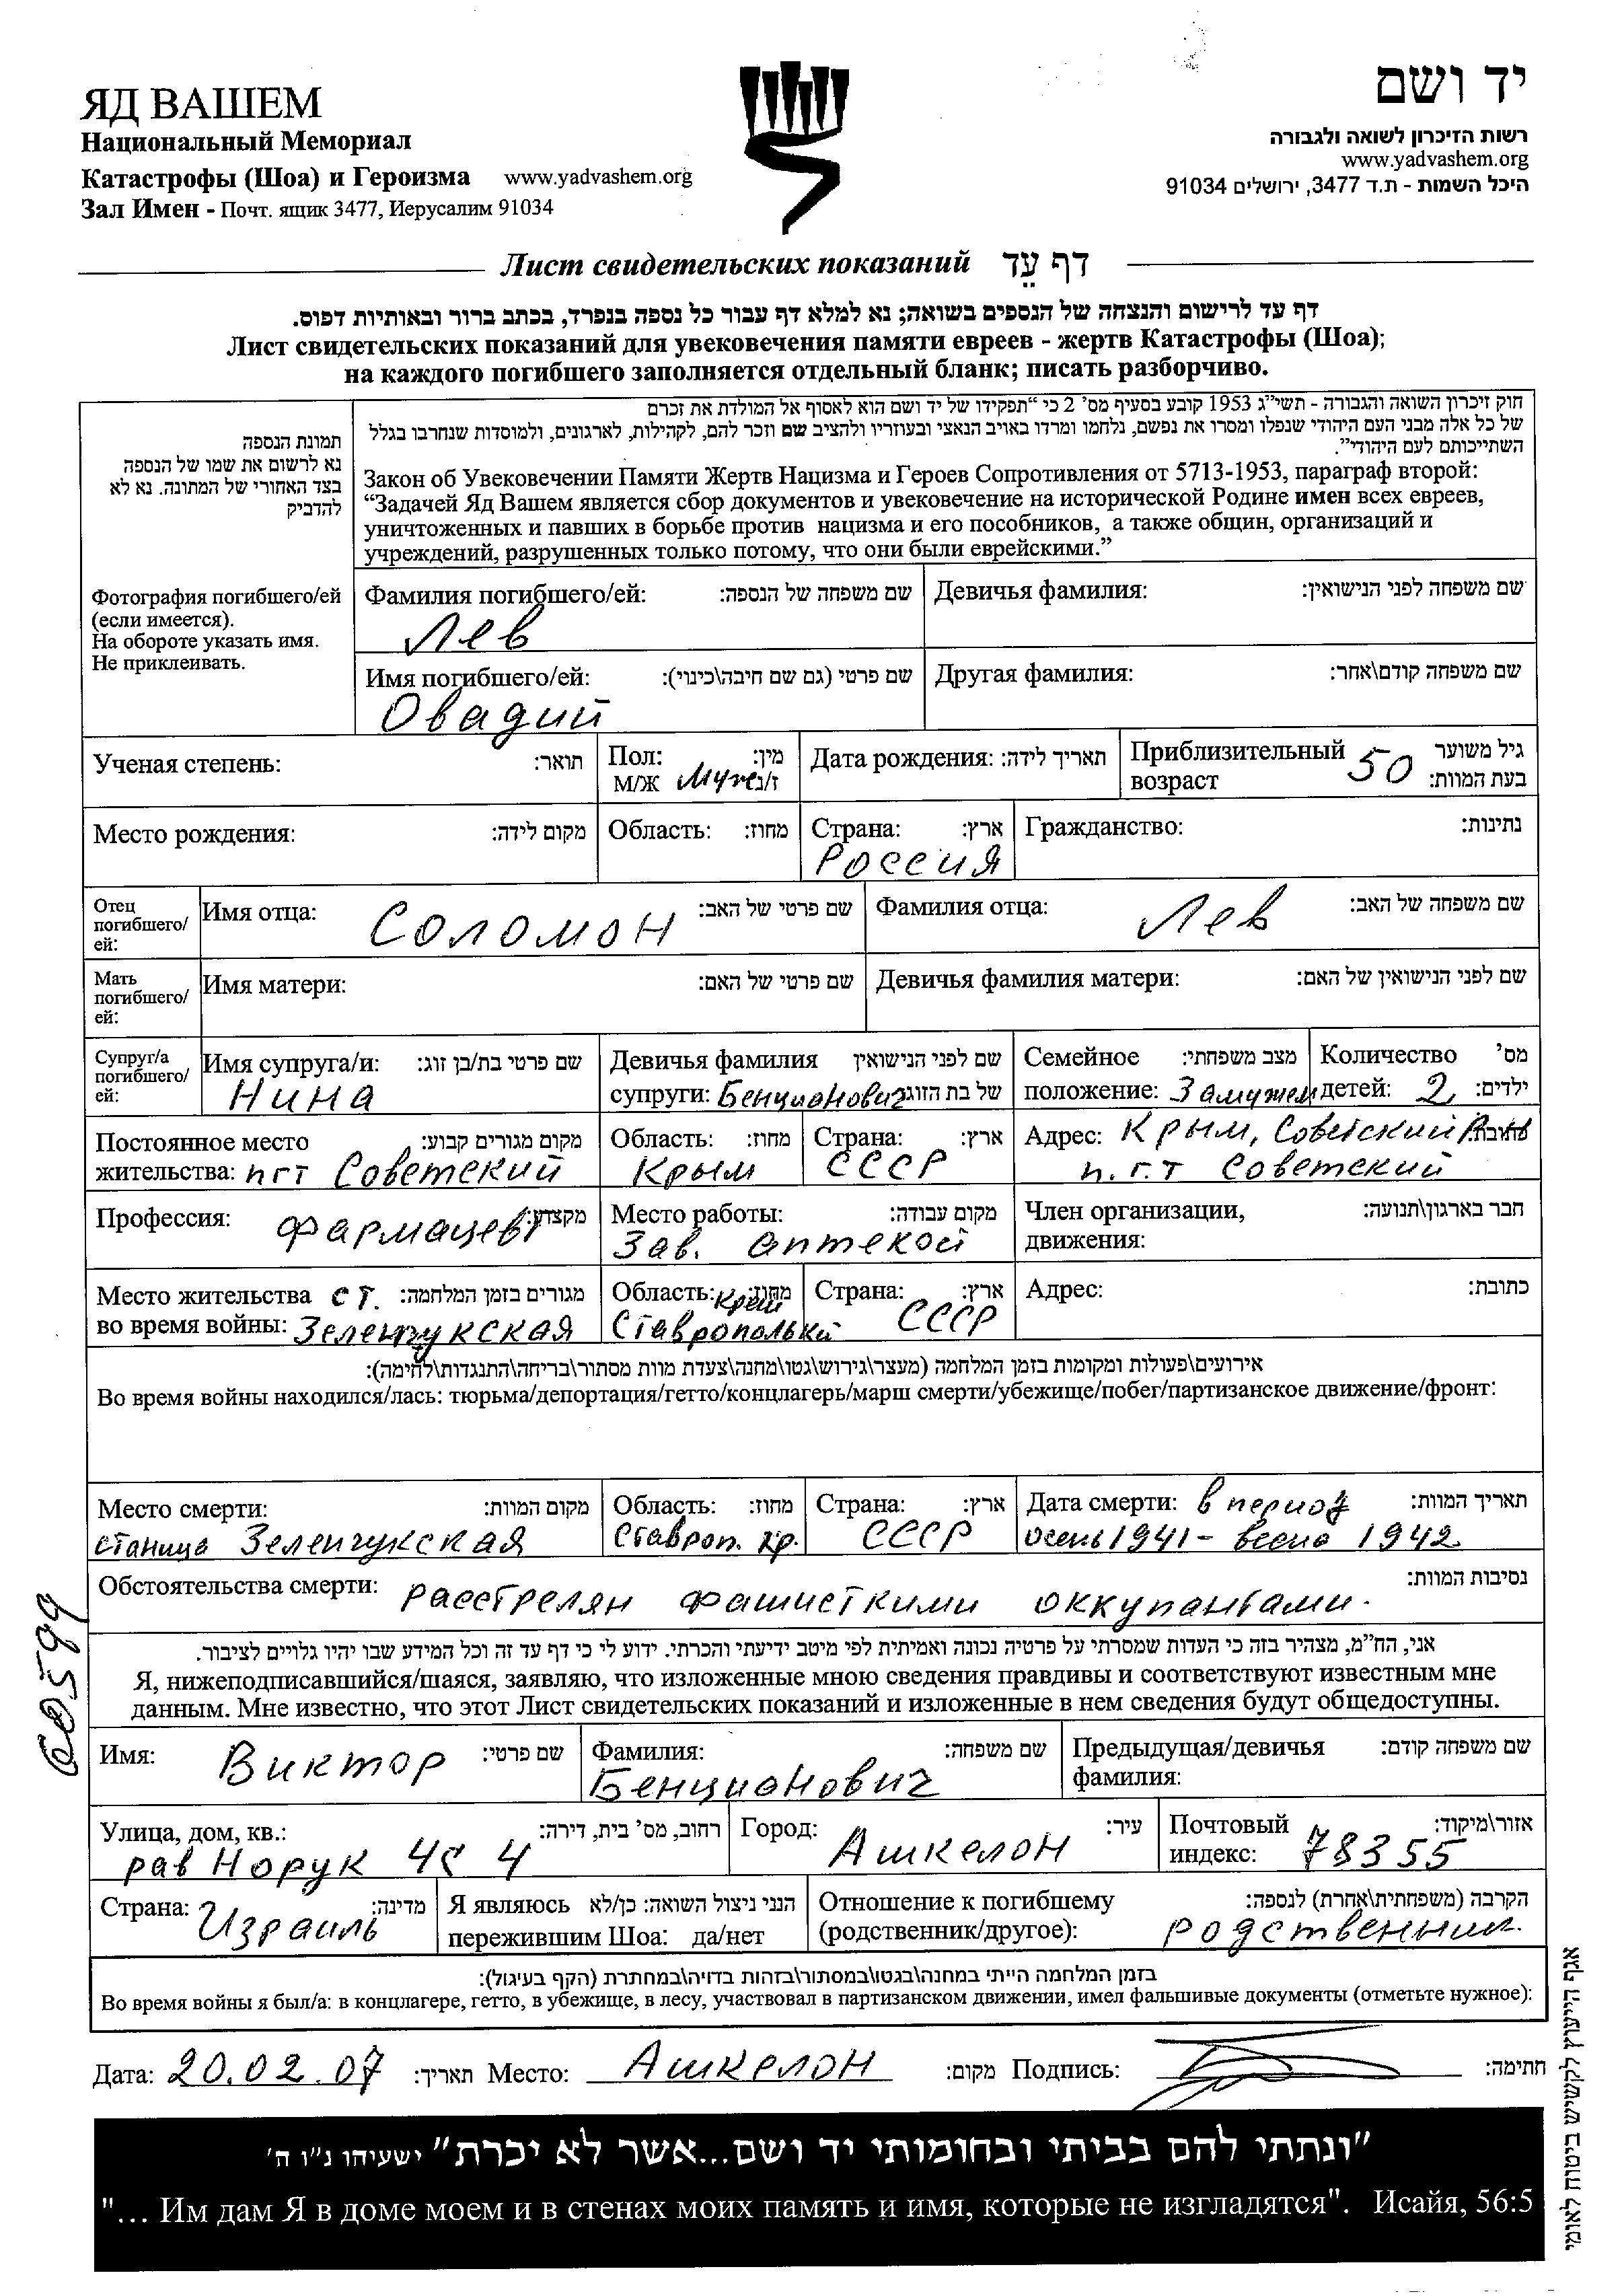 ЯД ВАШЕМ
Национальный Мемориал
Катастрофы (Шоа) и Героизма www.yadvashem.org
Зал Имен - Почт. ящик 3477, Иерусалим 91034
יד ושם
רשות הזיכרון לשואה ולגבורה
www.yadvashem.org
היכל השמות - ת.ד 3477, ירושלים 91034
Лист свидетельских показаний דף עֵד
דף עד לרישום והנצחה של הנספים בשואה; נא למלא דף עבור כל נספה בנפרד, בכתב ברור ובאותיות דפוס.
Лист свидетельских показаний для увековечения памяти евреев - жертв Катастрофы (Шоа);
на каждого погибшего заполняется отдельный бланк; писать разборчиво.
תמונת הנספה
נא לרשום את שמו של הנספה
בצד האחורי של המתונה. נא לא
להדביק
Фотография погибшего/ей
(если имеется).
На обороте указать имя.
Не приклеивать.
חוק זיכרון השואה והגבורה - תשי"ג 1953 קובע בסעיף מס' 2 כי "תפקידו של יד ושם הוא לאסוף אל המולדת את זכרם
של כל אלה מבני העם היהודי שנפלו ומסרו את נפשם, נלחמו ומרדו באויב הנאצי ובעוזריו ולהציב שם וזכר להם, לקהילות, לארגונים, ולמוסדות שנחרבו בגלל
השתייכותם לעם היהודי".
Закон об Увековечении Памяти Жертв Нацизма и Героев Сопротивления от 5713-1953, параграф второй:
“Задачей Яд Вашем является сбор документов и увековечение на исторической Родине имен всех евреев,
уничтоженных и павших в борьбе против нацизма и его пособников, а также общин, организаций и
учреждений, разрушенных только потому, что они были еврейскими.”
Фамилия погибшего/ей: שם משפחה של הנספה: Девичья фамилия: שם משפחה לפני הנישואין:
Лев
Имя погибшего/ей: שם פרטי (גם שם חיבה\כינוי): Другая фамилия: שם משפחה קודם\אחר:
Овадий
Ученая степень: תואר: Пол: מין: Дата рождения: תאריך לידה: Приблизительный 50 גיל משוער
м/ж муж ז/נ возраст בעת המוות:
Место рождения: מקום לידה: Область: מחוז: Страна: ארץ: Гражданство: נתינות:
Россия
Отец погибшего/ей: Имя отца: Соломон שם פרטי של האב: Фамилия отца: Лев שם משפחה של האב:
Мать погибшего/ей: Имя матери: שם פרטי של האם: Девичья фамилия матери: שם לפני הנישואין של האם:
Супруг/а погибшего/ей: Имя супруга/и: שם פרטי בת/בן זוג: Девичья фамилия שם לפני הנישואין Семейное מצב משפחתי: Количество מס'
Нина супруги: Бенцианович של בת הזוג: положение: Замужем детей: 2 ילדים:
Постоянное место מקום מגורים קבוע: Область: מחוז: Страна: ארץ: Адрес: Крым, Советский р-н כתובת:
жительства: пгт Советский Крым СССР п.г.т Советский
Профессия: Фармацевт מקצוע: Место работы: מקום עבודה: Член организации, חבר בארגון\תנועה:
Зав. аптекой движения:
Место жительства ст. מגורים בזמן המלחמה: Область: край מחוז: Страна: ארץ: Адрес: כתובת:
во время войны: Зеленчукская СССР
אירועים\פעולות ומקומות בזמן המלחמה (מעצר\גירוש\גטו\מחנה\צעדת מוות מסתור\בריחה\התנגדות\לחימה):
Во время войны находился/лась: тюрьма/депортация/гетто/концлагерь/марш смерти/убежище/побег/партизанское движение/фронт:
Место смерти: מקום המוות: Область: מחוז: Страна: ארץ: Дата смерти: в период תאריך המוות:
станица Зеленчукская Ставроп. кр. СССР осень 1941 - весна 1942
Обстоятельства смерти: расстрелян фашисткими оккупантами. נסיבות המוות:
אני, הח"מ, מצהיר בזה כי העדות שמסרתי על פרטיה נכונה ואמיתית לפי מיטב ידיעתי והכרתי. ידוע לי כי דף עד זה וכל המידע שבו יהיו גלויים לציבור.
Я, нижеподписавшийся/шаяся, заявляю, что изложенные мною сведения правдивы и соответствуют известным мне
данным. Мне известно, что этот Лист свидетельских показаний и изложенные в нем сведения будут общедоступны.
Имя: Виктор שם פרטי: Фамилия: שם משפחה: Предыдущая/девичья שם משפחה קודם:
Бенцианович фамилия:
Улица, дом, кв.: רחוב, מס' בית, דירה: Город: עיר: Почтовый אזור\מיקוד:
рав Норук 45 4 Ашкелон индекс: 78355
Страна: Израиль מדינה: Я являюсь הנני ניצול השואה: כן/לא Отношение к погибшему הקרבה (משפחתית\אחרת) לנספה:
пережившим Шоа: да/нет (родственник/другое): родственник.
בזמן המלחמה הייתי במחנה\בגטו\במסתור\בזהות בדויה\במחתרת (הקף בעיגול):
Во время войны я был/а: в концлагере, гетто, в убежище, в лесу, участвовал в партизанском движении, имел фальшивые документы (отметьте нужное):
Дата: 20.02.07 תאריך: Место: Ашкелон מקום: Подпись: חתימה:
"ונתתי להם בביתי ובחומותי יד ושם...אשר לא יכרת" ישעיהו נ"ו ה'
"... Им дам Я в доме моем и в стенах моих память и имя, которые не изгладятся". Исайя, 56:5
אגף הייעוץ לקשיש ביטוח לאומי